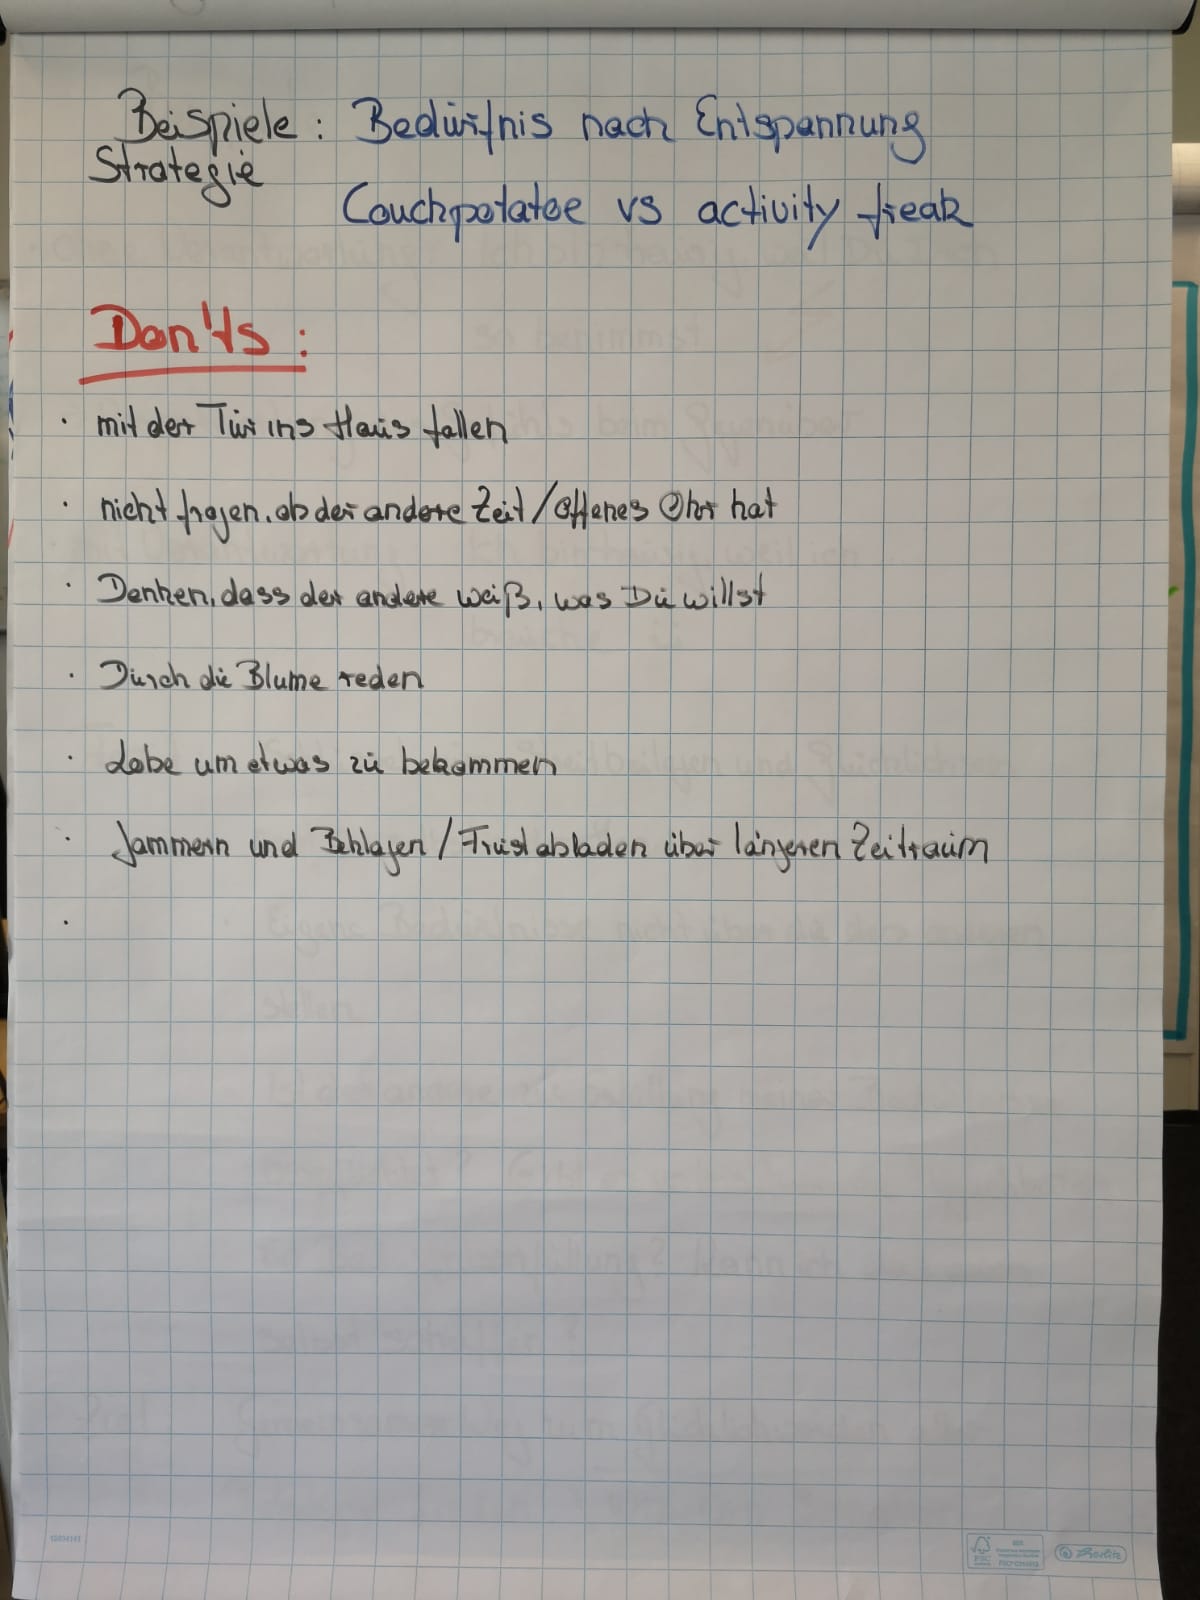 Beispiele: Bedürfnis nach Entspannung
Strategie
Couchpotatoe vs activity freak
Don'ts:
· mit der Tür ins Haus fallen
· nicht fragen, ob der andere Zeit/offenes Ohr hat
· Denken, dass der andere weiß, was Du willst
· Durch die Blume reden
· Lobe um etwas zu bekommen
· Jammern und Beklagen/Frust abladen über längeren Zeitraum
·
FSC
Herlitz